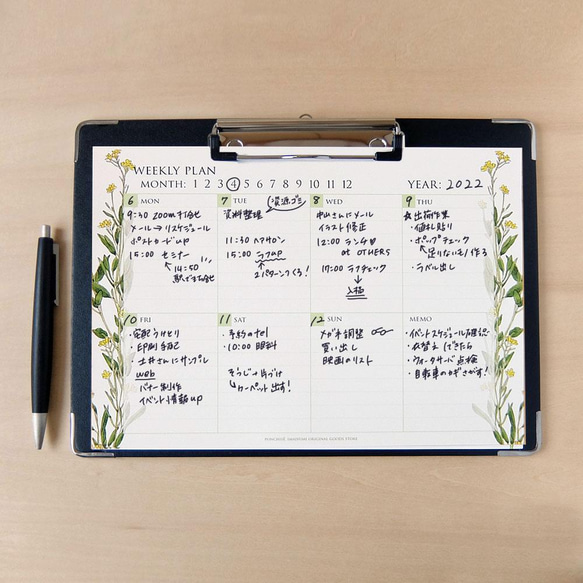 WEEKLY PLAN
MONTH: 1 2 3 4 5 6 7 8 9 10 11 12
YEAR: 2022
6 MON
9:30 zoom打合せ
メール→リスケジュール
ポストカードup
15:00 セミナー
14:50
駅で待合せ
7 TUE
資源ゴミ
資料整理
11:30 ヘアサロン
15:00 ラフup
2パターンつくる!
8 WED
中山さんにメール
イラスト修正
12:00 ランチ
at OTHERS
17:00 ラフチェック
入稿
9 THU
出荷作業
・値札貼り
・ポップチェック
足りないモノ作る
・ラベル出し
10 FRI
・宅配うけとり
・印刷手配
・土井さんにサンプル
web
バナー制作
イベント情報up
11 SAT
・予約のtel
・10:00 眼科
そうじ→片づけ
カーペット出す!
12 SUN
メガネ調整
買い出し
映画のリスト
MEMO
・イベントスケジュール確認
・衣替え できたら
・ウォーターサーバ点検
・自転車のカギさがす!